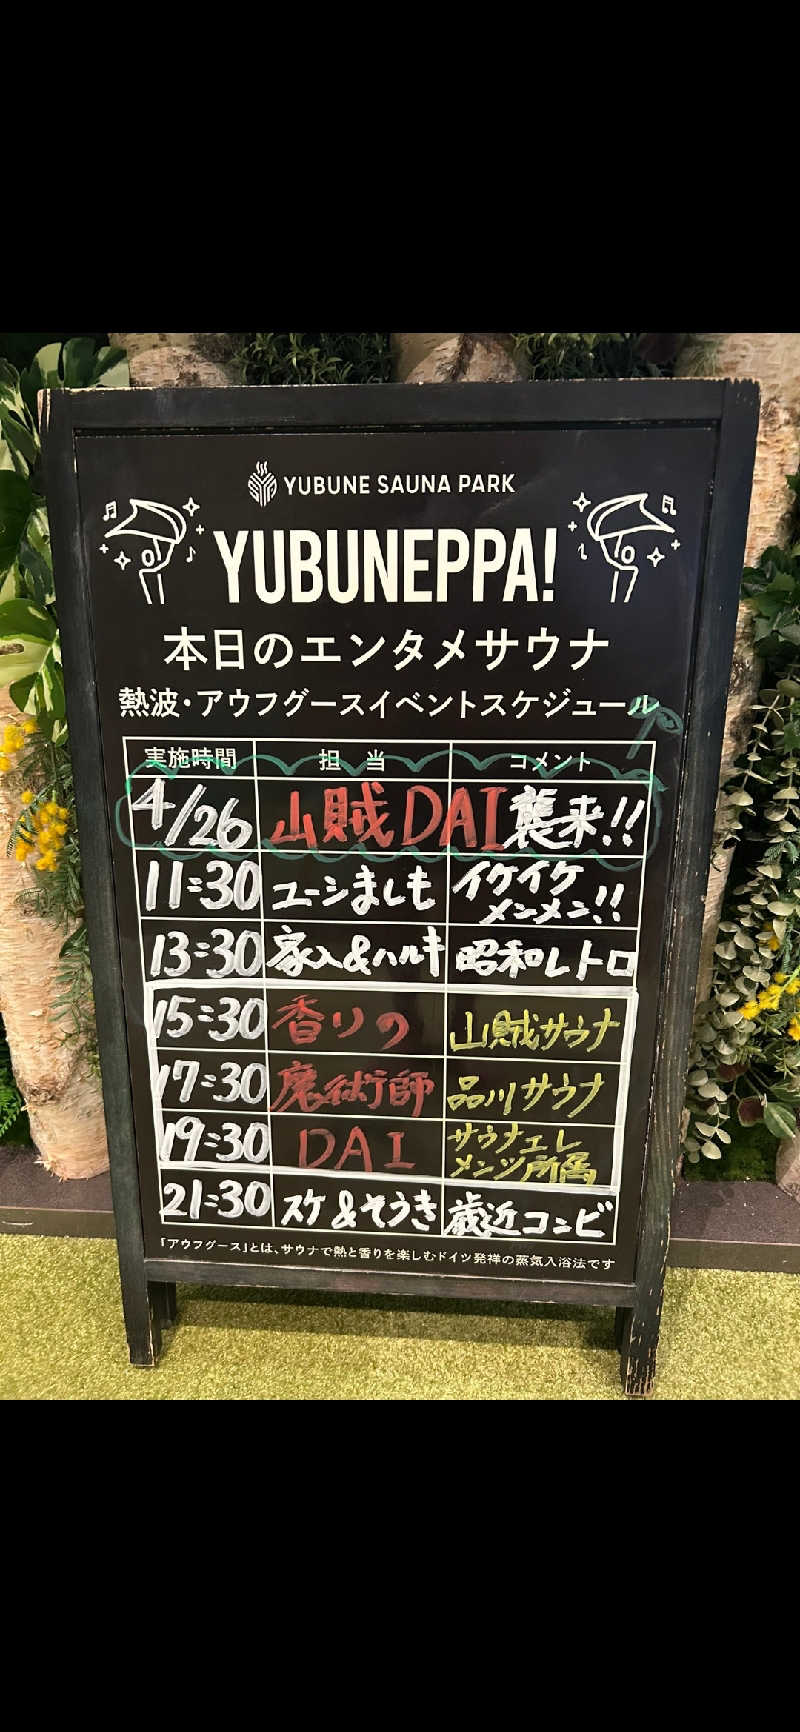 YUBUNE SAUNA PARK
YUBUNEPPA!
本日のエンタメサウナ
熱波・アウフグースイベントスケジュール
実施時間 担当 コメント
4/26 山賊DAI襲来!!
11:30 ユーシましも イケイケ
メンメン!!
13:30 家入&ハルキ 昭和レトロ
15:30 香りの 山賊サウナ
17:30 魔術師 品川サウナ
19:30 DAI サウナエレ
メンツ所属
21:30 スケ&そうき 歳近コンビ
「アウフグース」とは、サウナで熱と香りを楽しむドイツ発祥の蒸気入浴法です